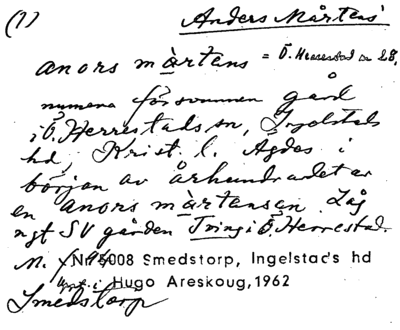 (1) Anders Mårtens
anors mārtens = Ö. Herrestad nr 28,
numera försvunnen gård
i Ö. Herrestads sn, Ingelstads
hd, Krist. l. Ägdes i
början av århundradet av
en anors mārtensen. Låg
ngt SV gården Tving i Ö. Herrestad.
M. Nr 5008 Smedstorp, Ingelstad's hd
i Hugo Areskoug, 1962
Smedstorp